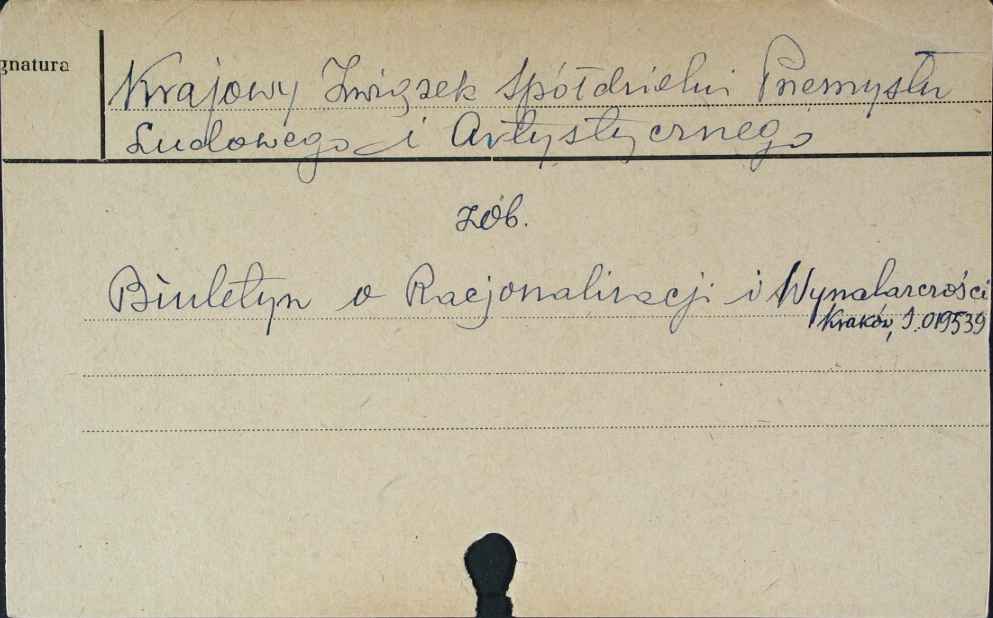 gnatura
Krajowy Związek Spółdzielni Przemysłu
Ludowego i Artystycznego
zób.
Biuletyn o Racjonalizacji i Wynalazczości
Kraków, J. 019539